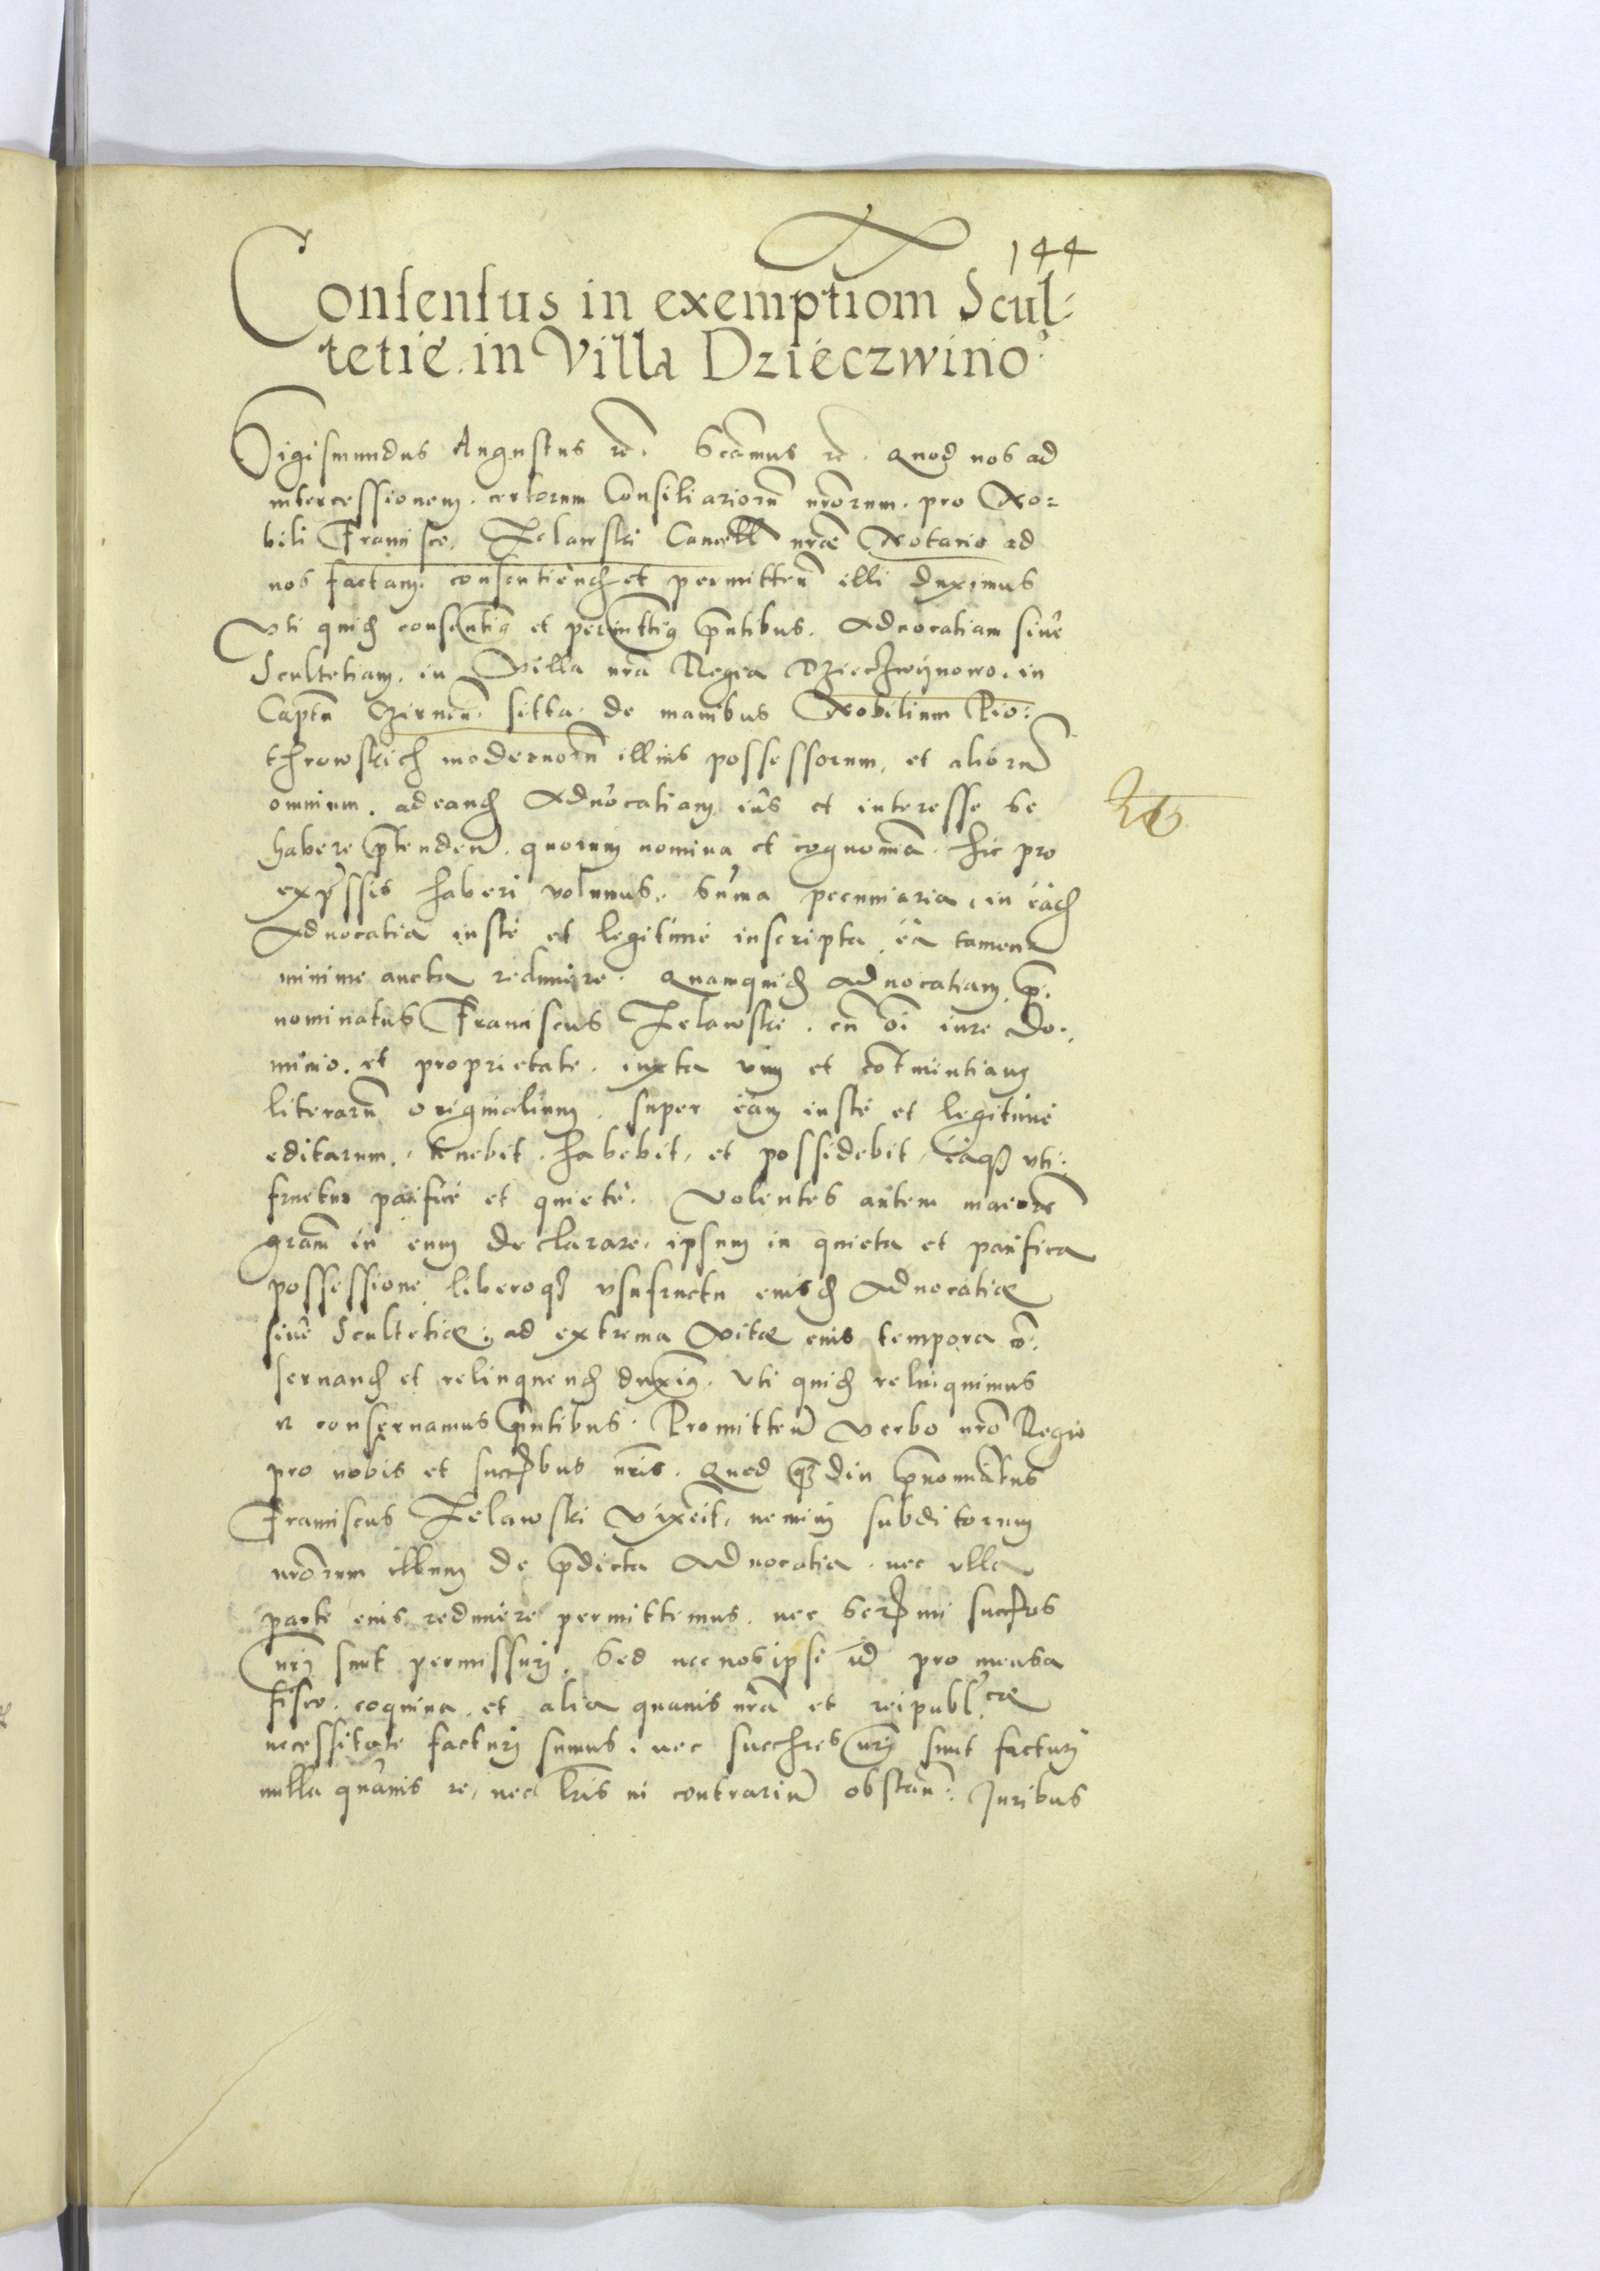 144
Consensus in exemptiom Scul-
tetie in Villa Dzieczwino
Sigismundus Augustus rc. Scamus rc. Quod nos ad
intercessionem certorum Consiliariorũ nrõrum pro No-
bili Francisco Zelawski Cancell nrae Notario ad
nos factam consentiend et permitten illi duximus
Uti quid consentimus et permittimus pntibus. Advocatiam sive
Scultetiam in Villa nra Regia Dzieczwijnowo in
Captu Czirnen. sitta de manibus Nobilium Pio-
throwskich modernorũ illius possessorum, et aliorũ
omnium, ad eand Advocatiam ius et interesse se
habere ptenden. quorum nomina et cognomina hic pro
expssis haberi volumus. Suma pecuniaria, in ead
Advocatia iuste et legitime inscripta ea tamen
minime aucta redimere. Quamquid advocatiam p-
nominatus Franciscus Zelawski. cũ oi iure do-
minio, et proprietate, iuxta vim et cotinentiam
literarũ originalium, super eam iuste et legitime
editarum, tenebit, habebit, et possidebit, eaq uti-
fruetur pacifice et quiete. Volentes autem maiorem
gram in eum declarare, ipsum in quieta et pacifica
possessione liberoq usufructu eiusd Advocatiae
sive Scultetiae, ad extrema Vitae eius tempora co-
servand et relinquend duximus. Uti quid relinquimus
et conservamus pntibus. Promitten verbo nro Regio
pro nobis et succbus nris. Quod q diu pnominatus
Franciscus Zelawski vixerit, nemini subditorum
nrõrum illum de pdicta Advocatia, nec ulla
parte eius redimere permittemus, nec Sermi succres
nri sint permissuri. Sed nec nos ipsi id pro mensa
fisco, coquina, et alia quavis nra et reipubl.cae
necessitate facturi sumus, nec succres nri sint facturi
nulla quavis re, nec lris in contrariũ obstan. Juribus